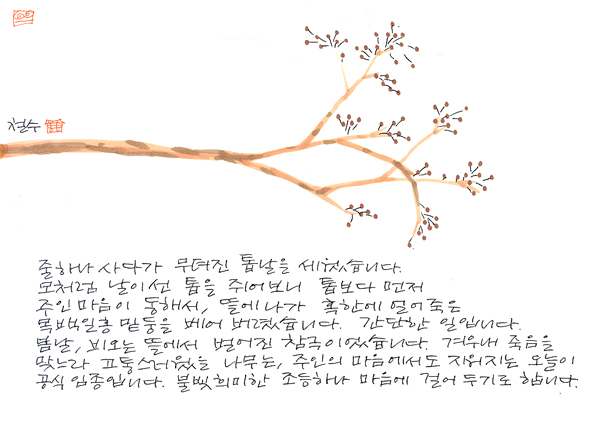 철수
줄하나 사다가 무뎌진 톱날을 세웠습니다.
모처럼 날이선 톱을 쥐어보니 톱보다 먼저
주인 마음이 동해서, 뜰에 나가 혹한에 얼어죽은
목백일홍 밑둥을 베어 버렸습니다. 간단한 일입니다.
봄날, 비오는 뜰에서 벌어진 참극이었습니다. 겨우내 죽음을
맞느라 고통스러웠을 나무는, 주인의 마음에서도 지워지는 오늘이
공식 임종입니다. 불빛 희미한 조등하나 마음에 걸어 두기로 합니다.